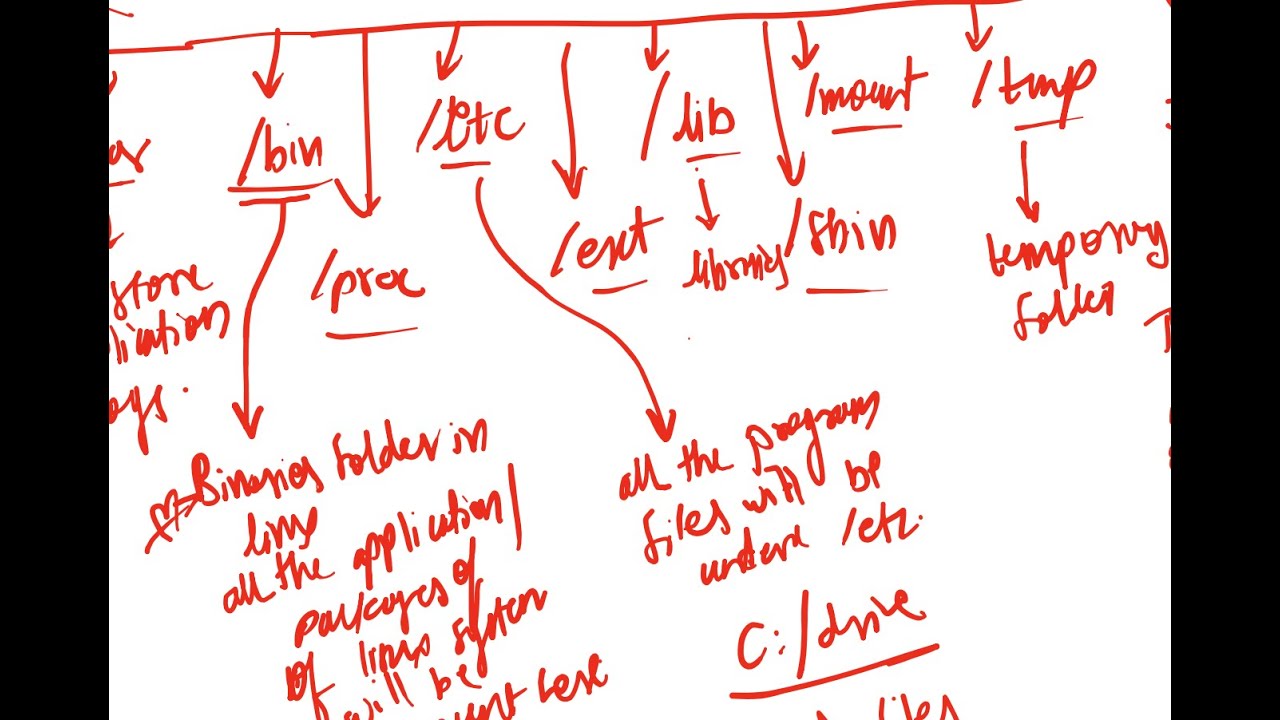 /bin
/proc
/etc
/ext
/lib
libraries
/sbin
/mount
/tmp
temporary
folder
store
Binaries folder in
linux
all the application/
packages of
of linux system
will be
all the program
files will be
under /etc.
C:/drive
files